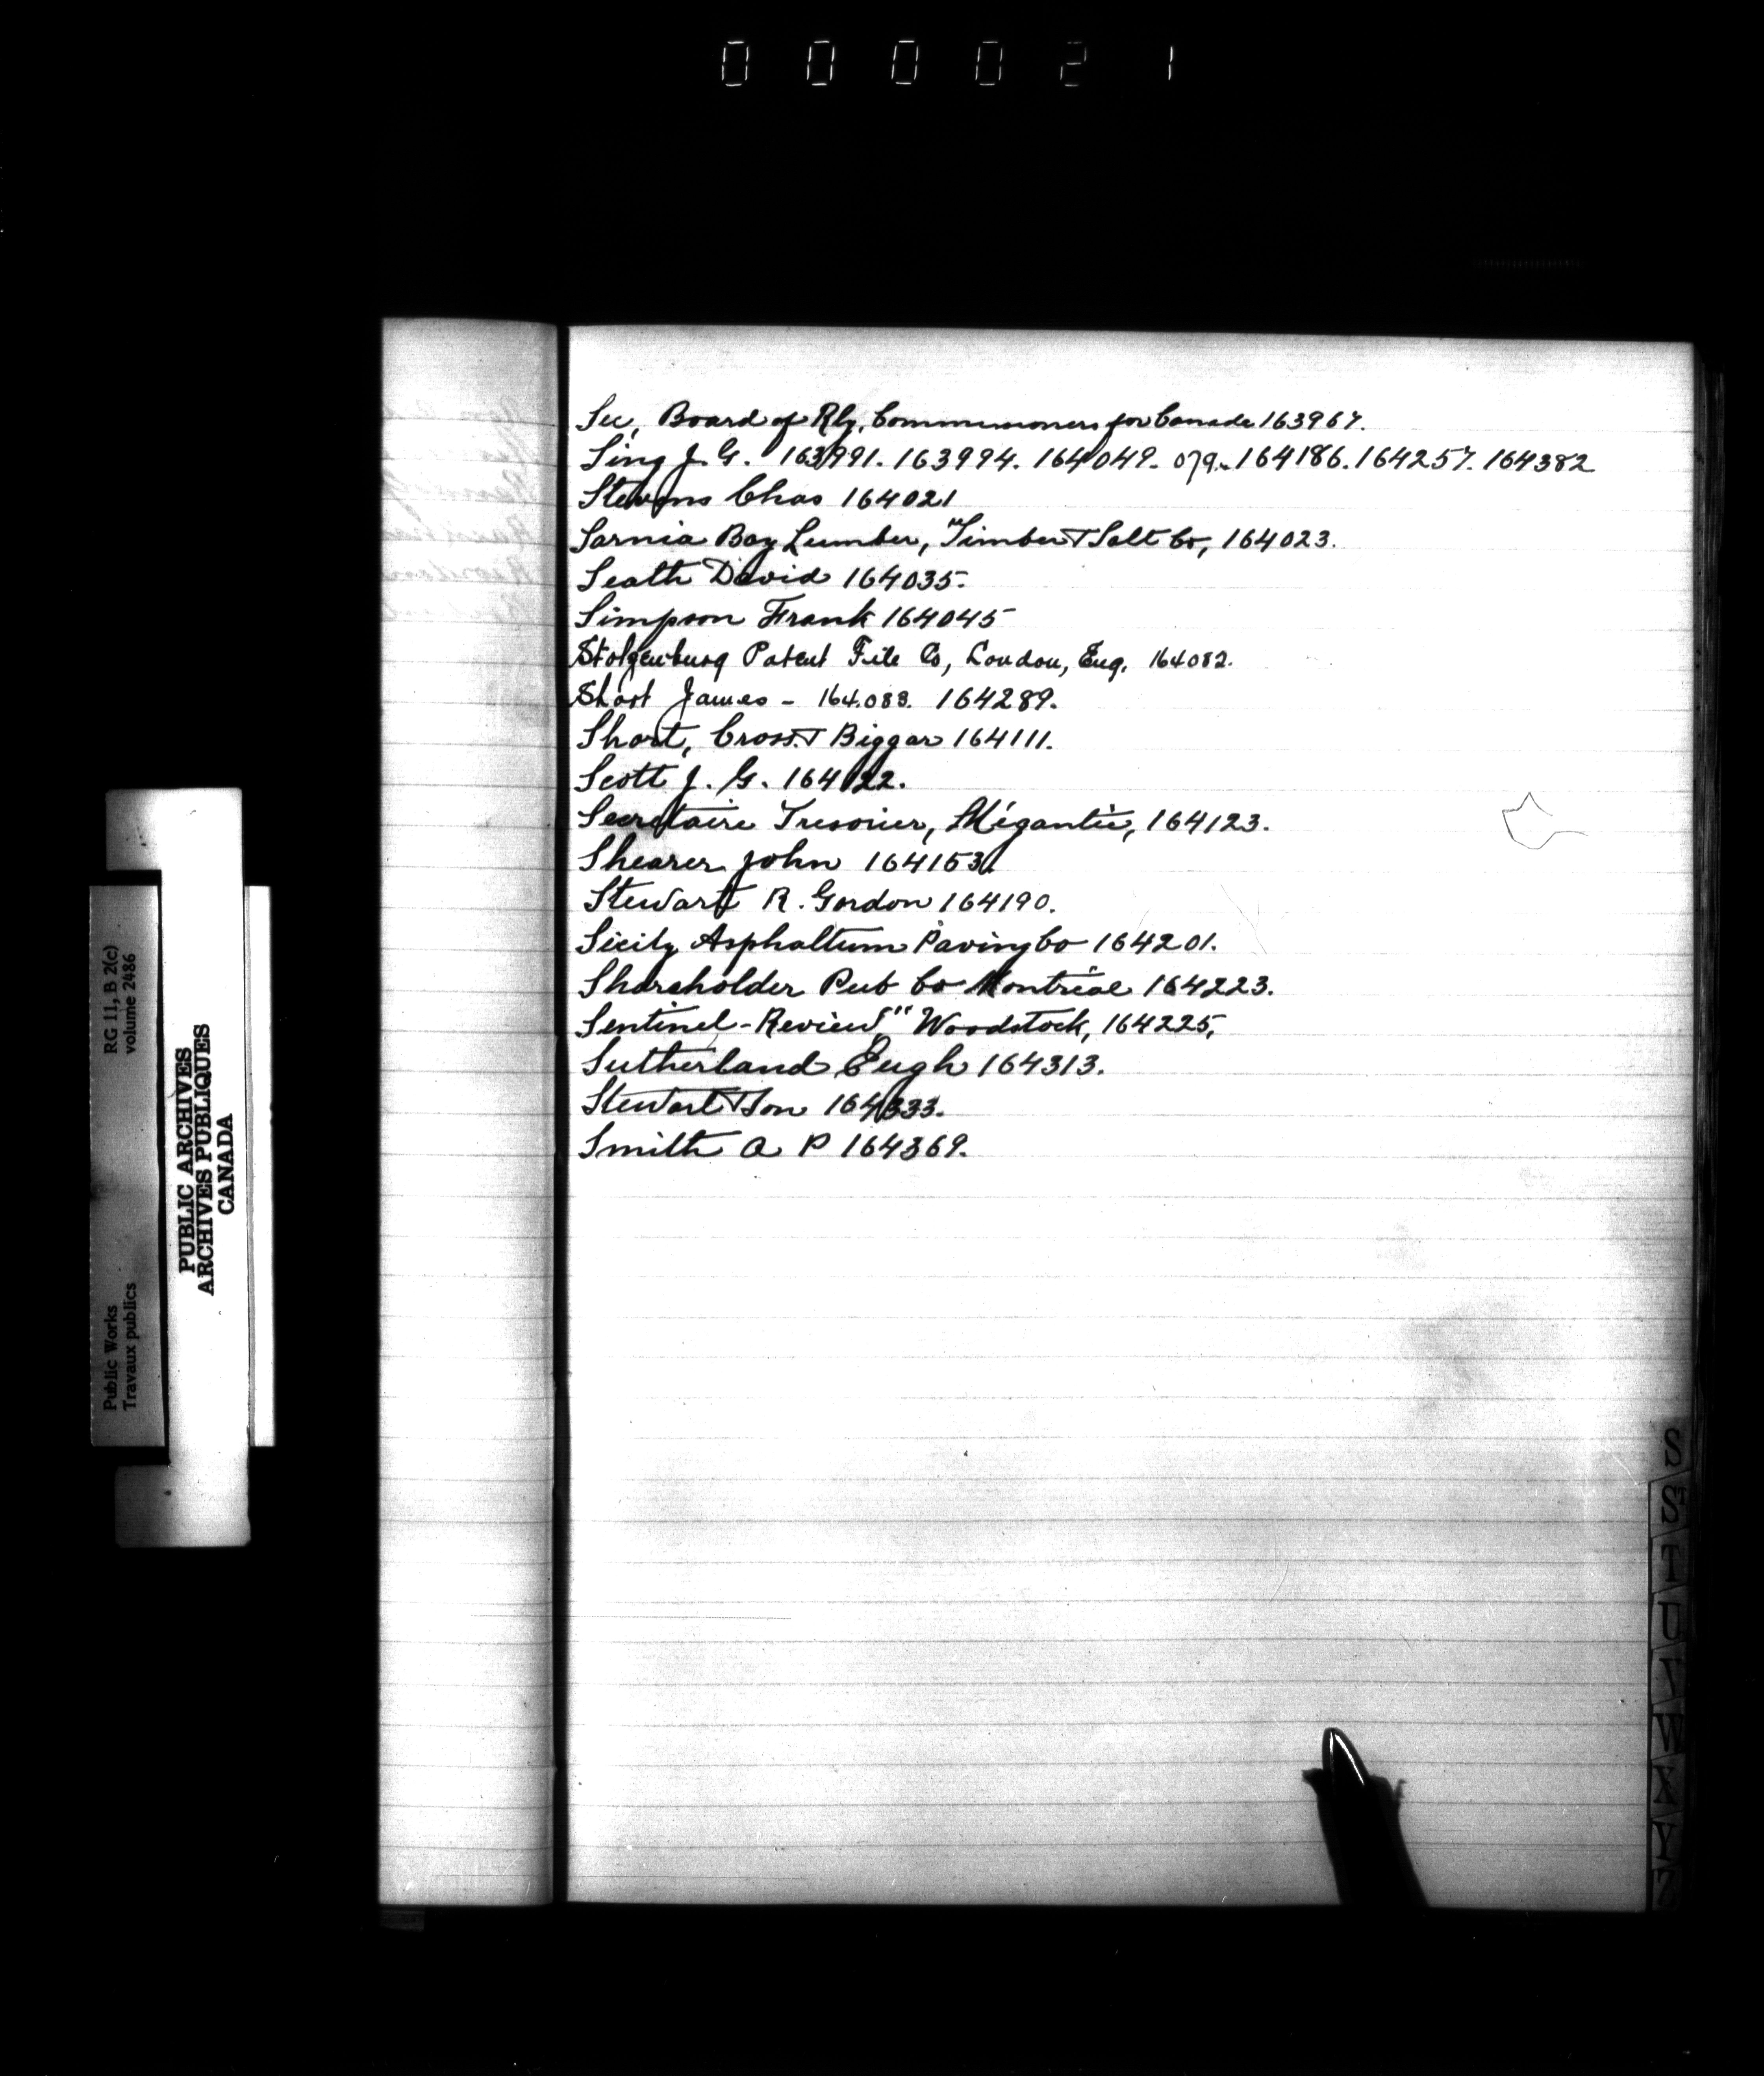 000021
Sec, Board of Rly, Commissioners for Canada 163967.
Sing J. G. 163991. 163994. 164049. 079. 164186. 164257. 164382
Stevens Chas 164021
Sarnia Bay Lumber, Timber & Salt Co, 164023.
Seath David 164035.
Simpson Frank 164045
Stolzenburg Patent File Co, London, Eng. 164082.
Short James - 164.083. 164289.
Short, Cross & Biggar 164111.
Scott J. G. 164122.
Secretaire Tresorier, Mégantic, 164123.
Shearer John 164153.
Stewart R. Gordon 164190.
Sicily Asphaltum Paving Co 164201.
Shareholder Pub Co Montreal 164223.
Sentinel-Review," Woodstock, 164225,
Sutherland Hugh 164313.
Stewart & Son 164333.
Smith A P 164369.
RG 11, B 2(c)
volume 2486
Public Works
Travaux publics
PUBLIC ARCHIVES
ARCHIVES PUBLIQUES
CANADA
S
S
T
U
V
W
X
Y
Z